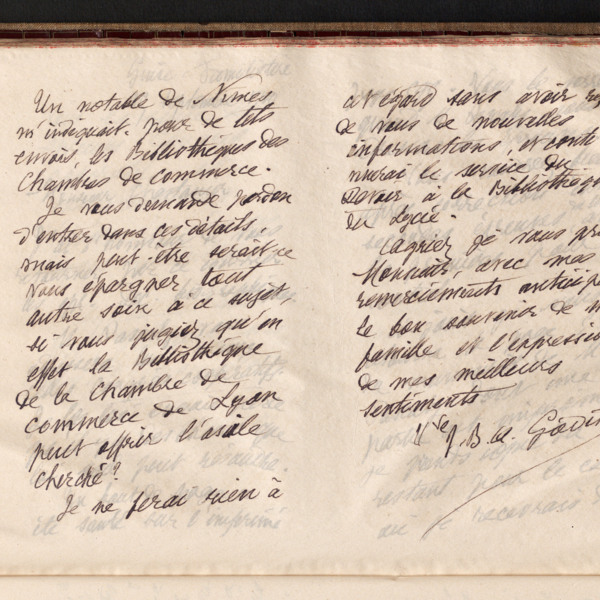 Un notable de Nimes
m'indiquait, pour de tels
envois, les Bibliothèques des
Chambres de commerce.
Je vous demande pardon
d'entrer dans ces détails,
mais peut-être serait-ce
vous épargner tout
autre soin à ce sujet,
si vous jugiez qu'en
effet la Bibliothèque
de la Chambre de
commerce de Lyon
peut offrir l'asile
cherché?
Je ne ferai rien à
cet égard sans avoir
de vous de nouvelles
informations, et conti
nuerai le service du
Devoir à la Bibliothèque
du Lycée.
Agréez je vous pr
Monsieur, avec mes
remerciements anticipés
le bon souvenir de m
famille et l'expression
de mes meilleurs
sentiments
Vve J. B. A. Godin